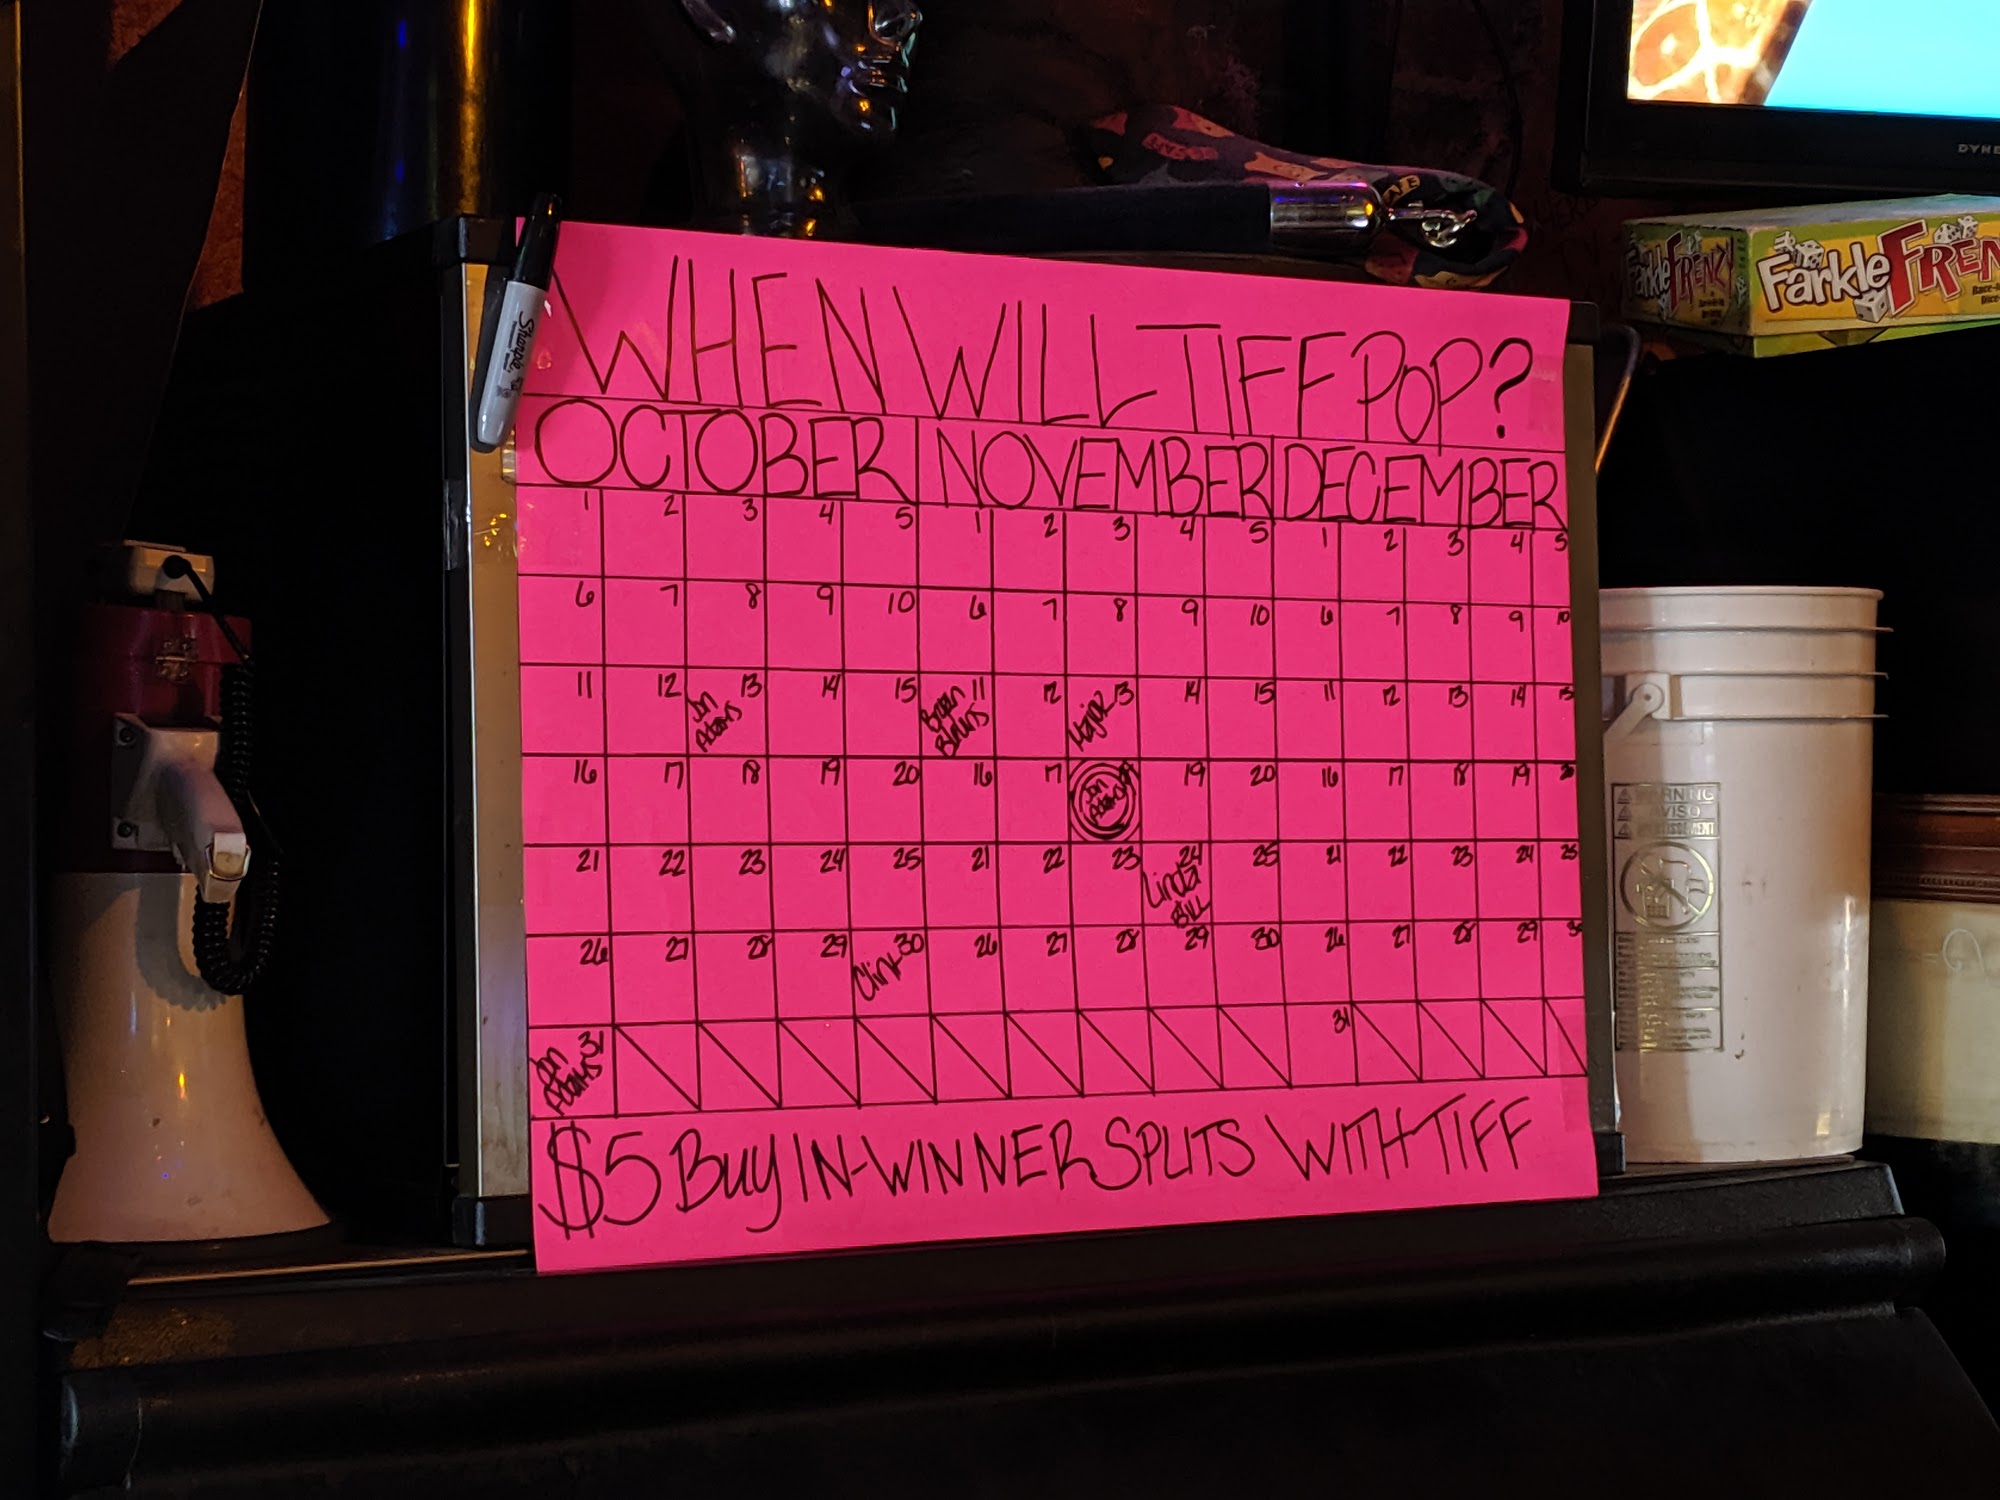 WHEN WILL TIFF POP?
OCTOBER NOVEMBER DECEMBER
1 2 3 4 5 1 2 3 4 5 1 2 3 4 5
6 7 8 9 10 6 7 8 9 10 6 7 8 9 10
11 12 Jon Adams 13 14 15 11 12 13 14 15 11 12 13 14 15
16 17 18 19 20 16 17 Jon Adams 19 20 16 17 18 19 20
21 22 23 24 25 21 22 23 24 Linda & BILL 25 21 22 23 24 25
26 27 28 29 Clink 30 26 27 28 29 30 26 27 28 29 30
Jon Adams 31 31
$5 Buy IN-WINNER SPLITS WITH TIFF
Sharpie
Farkle FRENZY
Farkle FREN
DYNE
WARNING
AVISO